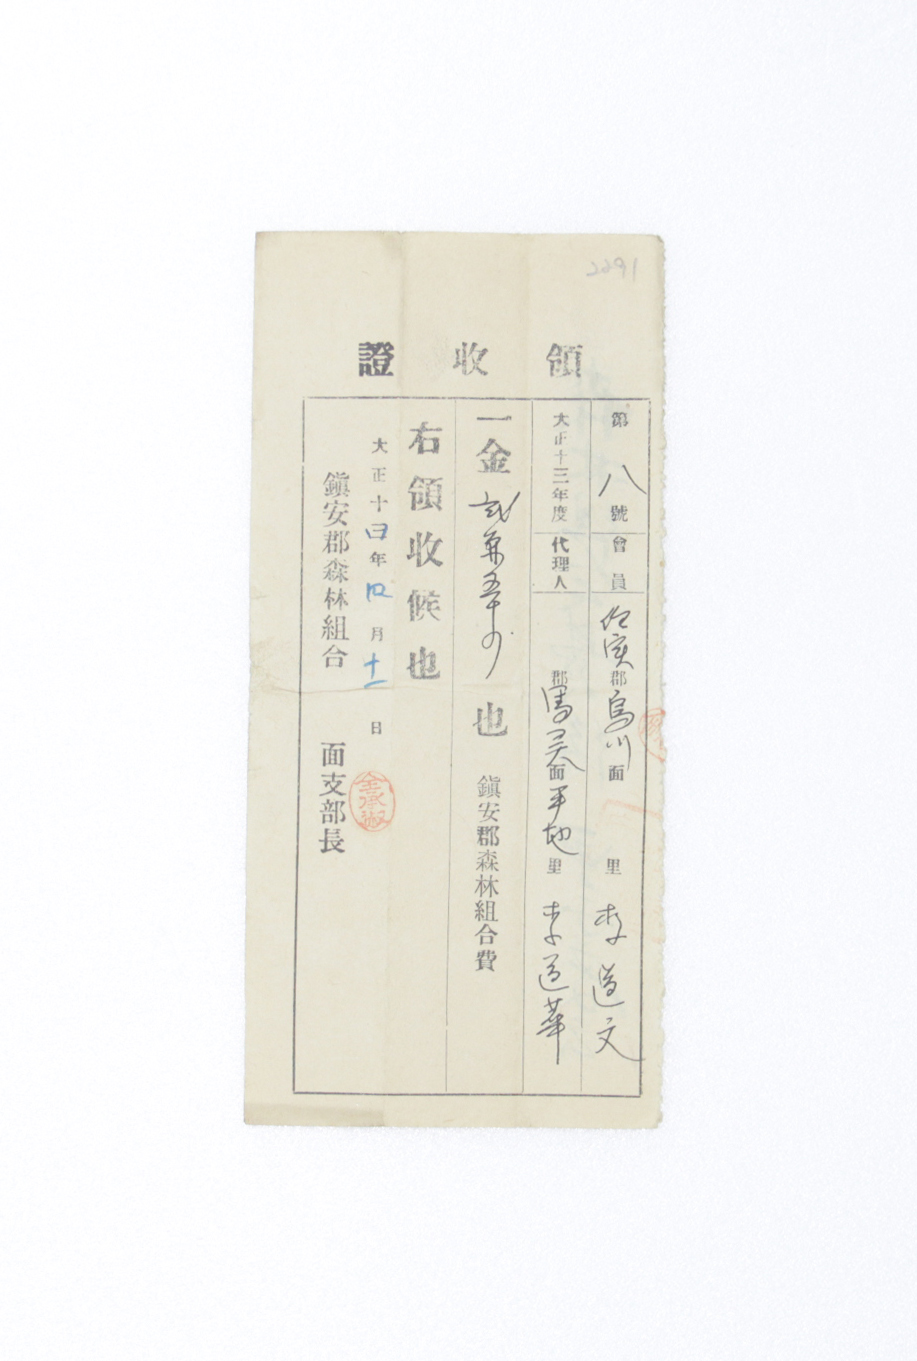 2291
領收證
第八號 會員 任實郡烏川面 里 李道文
大正十三年度 代理人 郡馬灵面平地里 李道華
一金 也 鎭安郡森林組合費
右領收候也
大正十四年四月十一日
鎭安郡森林組合 面支部長